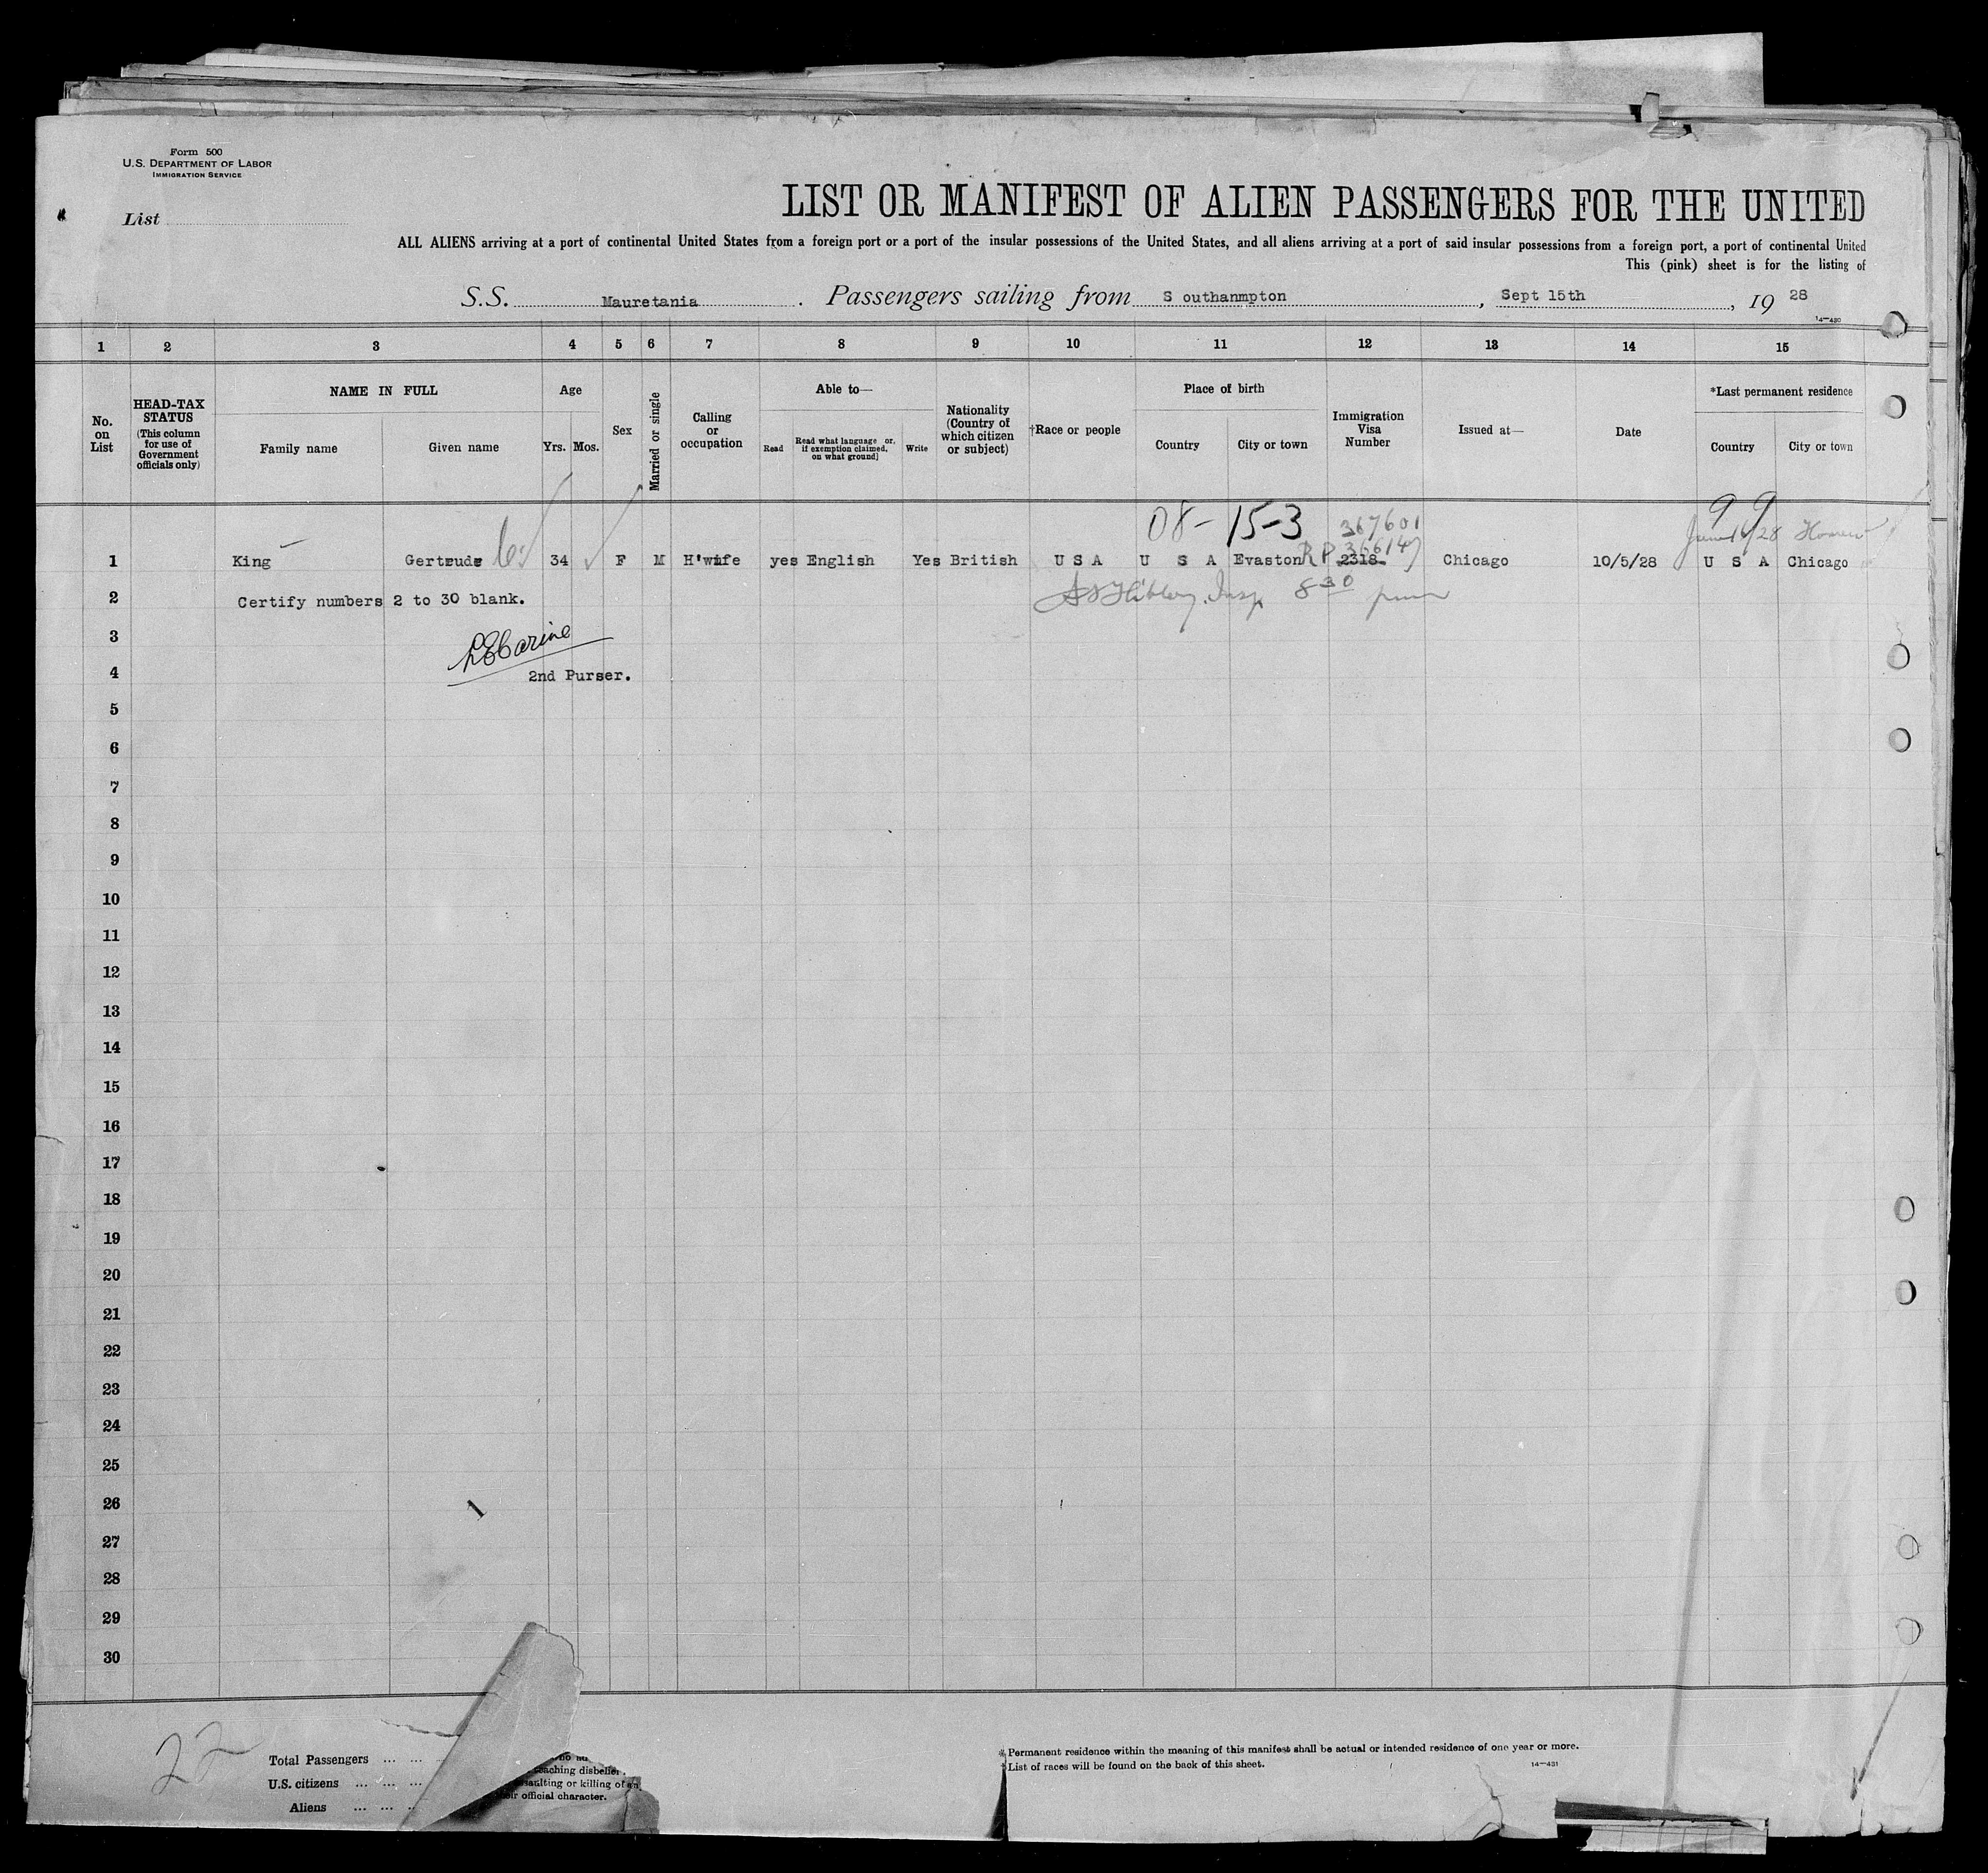 Form 500
U.S. DEPARTMENT OF LABOR
IMMIGRATION SERVICE
List
LIST OR MANIFEST OF ALIEN PASSENGERS FOR THE UNITED
ALL ALIENS arriving at a port of continental United States from a foreign port or a port of the insular possessions of the United States, and all aliens arriving at a port of said insular possessions from a foreign port, a port of continental United
This (pink) sheet is for the listing of
S.S. Mauretania. Passengers sailing from S outhanmpton, Sept 15th, 19 28
14—430
1 2 3 4 5 6 7 8 9 10 11 12 13 14 15
No. on List
HEAD-TAX STATUS (This column for use of Government officials only)
NAME IN FULL
Family name Given name
Age
Yrs. Mos.
Sex
Married or single
Calling or occupation
Able to—
Read Read what language or, if exemption claimed, on what ground] Write
Nationality (Country of which citizen or subject)
†Race or people
Place of birth
Country City or town
Immigration Visa Number
Issued at—
Date
*Last permanent residence
Country City or town
08-15-3 367601 99
June 14/28
RP 366147
1 King Gertrude 34 F M H'wife yes English Yes British U S A U S A Evaston 2318 Chicago 10/5/28 U S A Chicago
2 Certify numbers 2 to 30 blank. Insp. 8 30
3
4 2nd Purser.
5
6
7
8
9
10
11
12
13
14
15
16
17
18
19
20
21
22
23
24
25
26
27
28
29
30
22
Total Passengers ... ...
U.S. citizens ... ... ...
Aliens ... ... ...
eaching disbelief
saulting or killing of an
eir official character.
* Permanent residence within the meaning of this manifest shall be actual or intended residence of one year or more.
† List of races will be found on the back of this sheet.
14—431